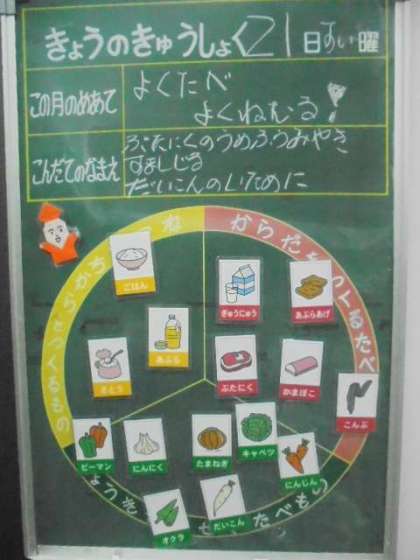 きょうのきゅうしょく 21日 すい曜
この月のめあて
よくたべ
よくねむる!
こんだてのなまえ
ぶたにくのうめふうみやき
すましじる
だいこんのいために
ちからやねつ
になるもの
からだをつくるたべ
たべもの
ごはん
ぎゅうにゅう
あぶらあげ
あぶら
さとう
ぶたにく
かまぼこ
こんぶ
ピーマン
にんにく
たまねぎ
キャベツ
にんじん
オクラ
だいこん